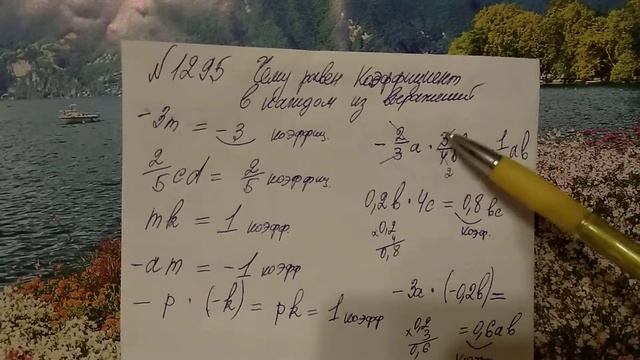 N1295 Чему равен коэффициент
в каждом из выражений
-3m = -3 коэффиц.
2/5 cd = 2/5 коэффиц.
mk = 1 коэфф.
-am = -1 коэфф
- p · (-k) = pk = 1 коэфф
- 2/3 a ·
1 ab
2
0,2b · 4c = 0,8bc
коэф.
×0,2
4
0,8
-3a · (-0,2b) =
= 0,6ab
×0,2
3
0,6